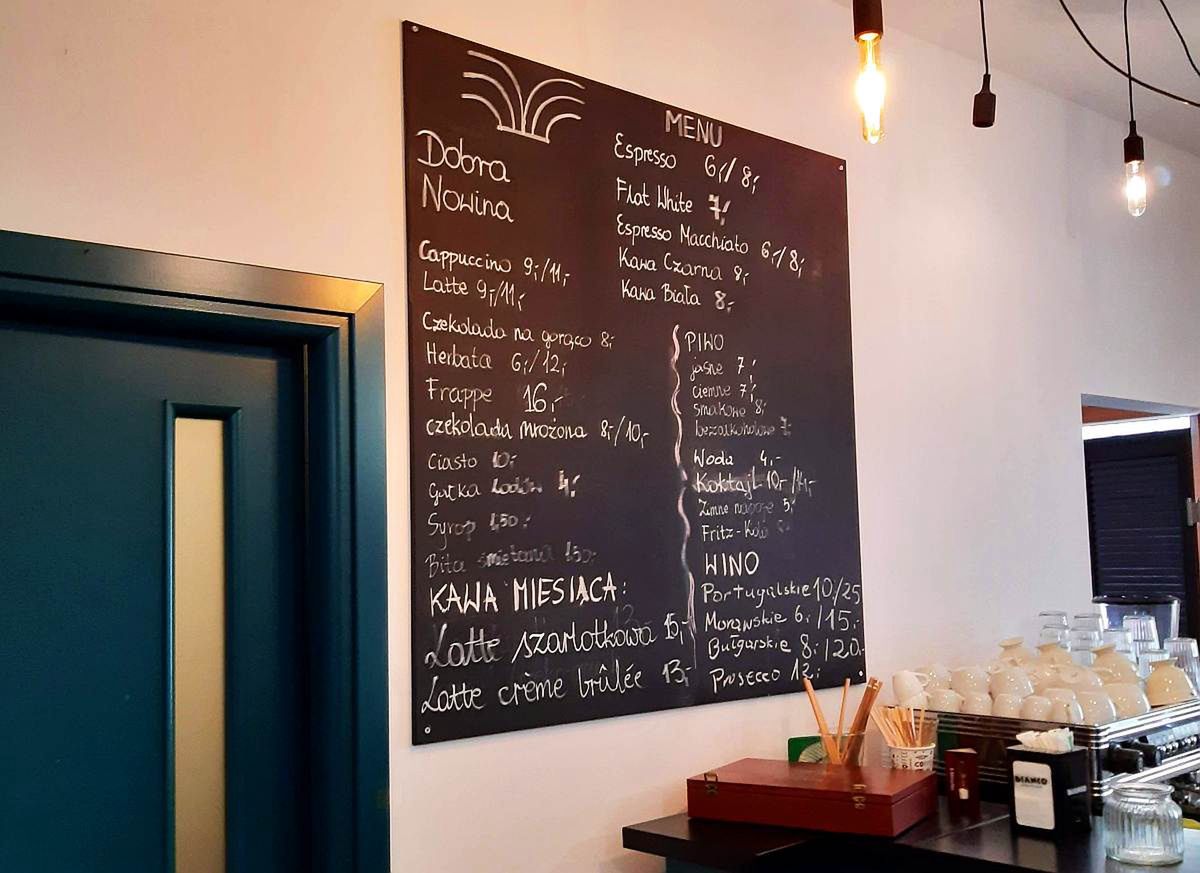 MENU
Dobra
Nowina
Cappuccino 9,-/11,-
Latte 9,-/11,-
Czekolada na gorąco 8,-
Herbata 6,-/12,-
Frappe 16,-
czekolada mrożona 8,-/10,-
Ciasto 10,-
Gałka Lodów 4,-
Syrop 1,50,-
Bita śmietana 1,50,-
KAWA MIESIĄCA:
Latte szarlotkowa 15,-
Latte crème brûlée 13,-
Espresso 6,-/8,-
Flat White 7,-
Espresso Macchiato 6,-/8,-
Kawa Czarna 8,-
Kawa Biała 8,-
PIWO
jasne 7,-
ciemne 7,-
smakowe 8,-
bezalkoholowe 7,-
Woda 4,-
Koktajl 10,-/14,-
Zimne napoje 5,-
Fritz-Kola
WINO
Portugalskie 10/25
Morawskie 6,-/15,-
Bułgarskie 8,-/20,-
Prosecco 12,-